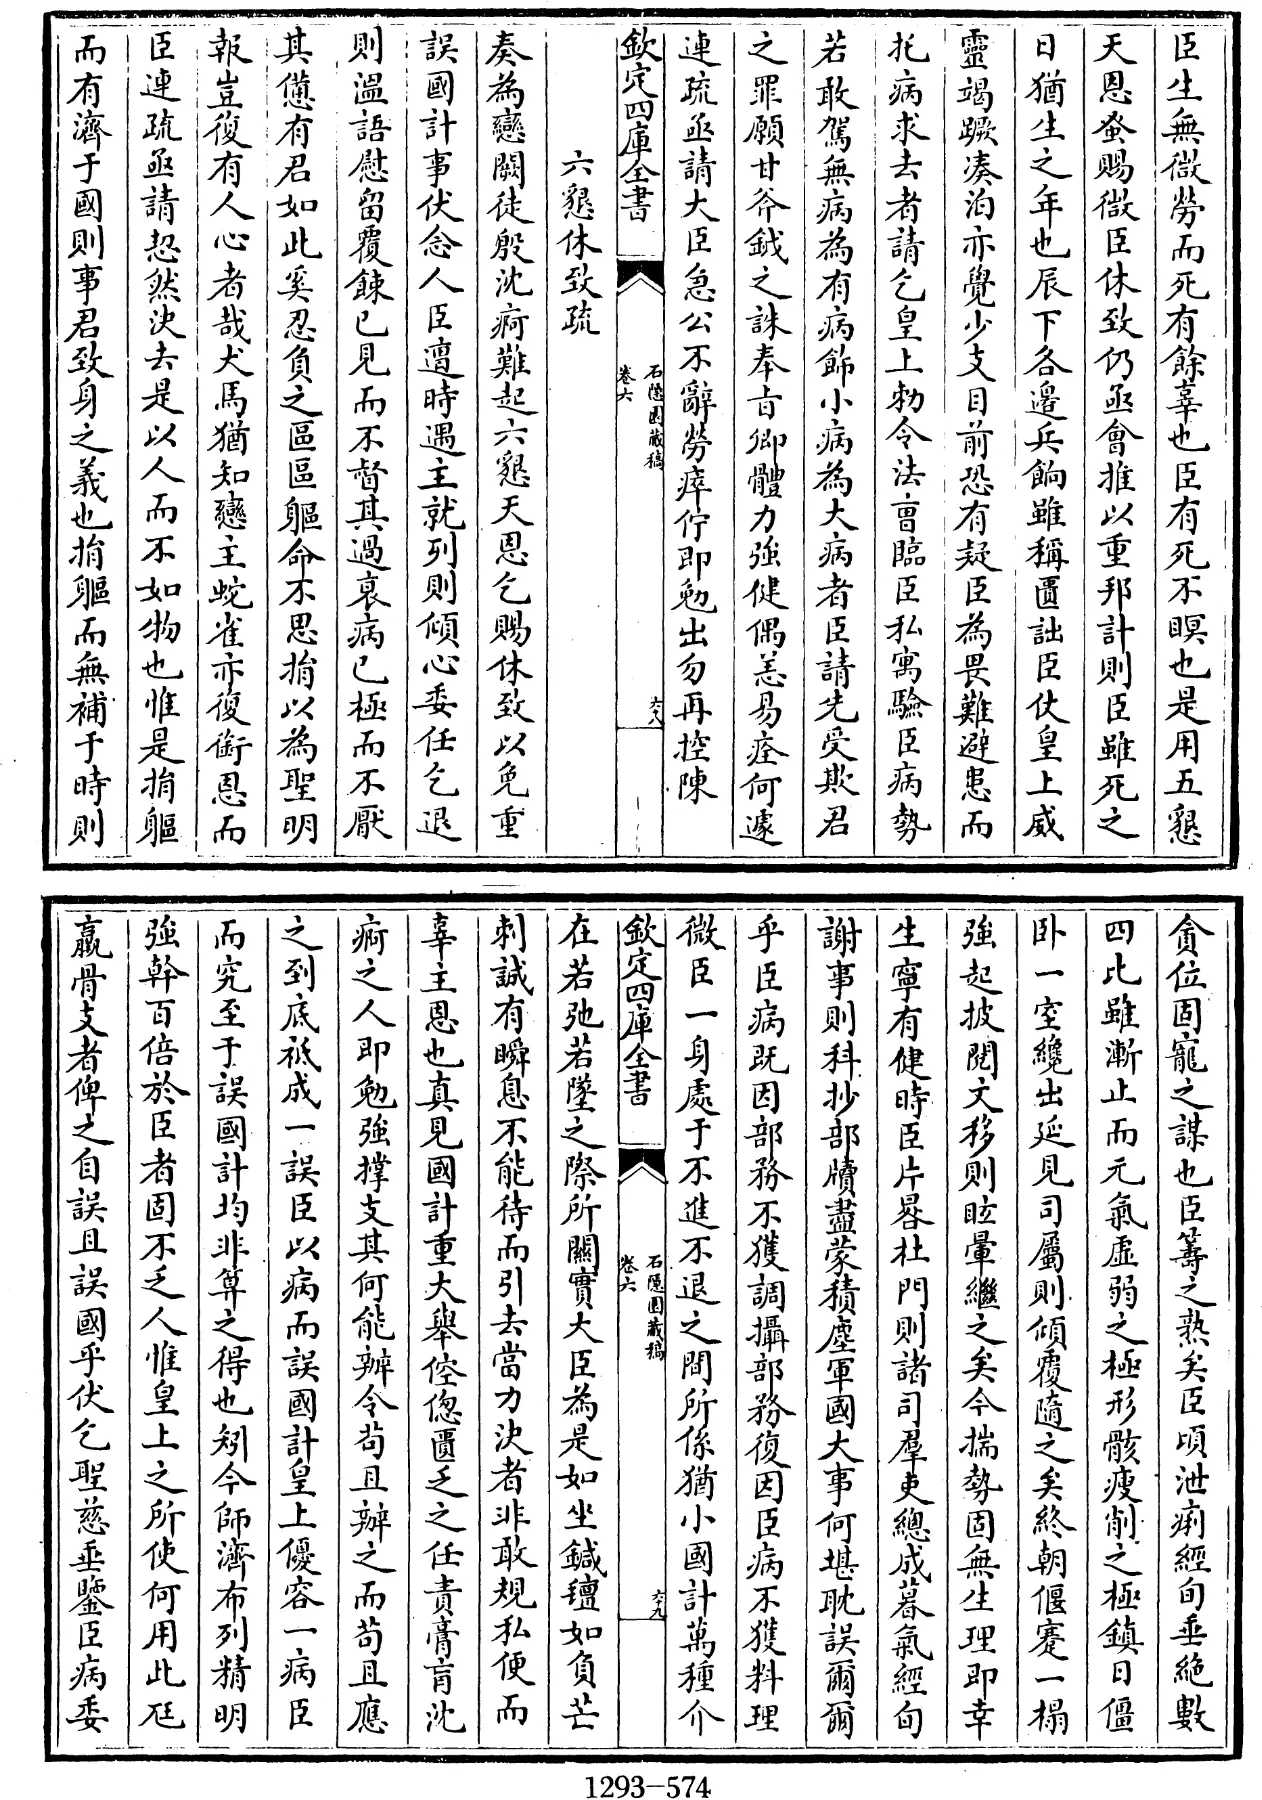 臣生無微勞而死有餘辜也臣有死不瞑也是用五懇
天恩蚤賜微臣休致仍亟會推以重邦計則臣雖死之
日猶生之年也辰下各邊兵餉雖稱匱詘臣仗皇上威
靈竭蹶湊泊亦覺少支目前恐有疑臣為畏難避患而
托病求去者請乞皇上勑令法曹臨臣私寓驗臣病勢
若敢駕無病為有病飾小病為大病者臣請先受欺君
之罪願甘斧鉞之誅奉旨卿體力強健偶恙易痊何遽
連疏亟請大臣急公不辭勞瘁佇即勉出勿再控陳
欽定四庫全書
石隱園藏稿
卷六
六八
六懇休致疏
奏為戀闕徒殷沈痾難起六懇天恩乞賜休致以免重
誤國計事伏念人臣遭時遇主就列則傾心委任乞退
則溫語慰留覆餗已見而不督其過衰病已極而不厭
其憊有君如此奚忍負之區區軀命不思捐以為聖明
報豈復有人心者哉犬馬猶知戀主蛇雀亦復銜恩而
臣連疏亟請恝然決去是以人而不如物也惟是捐軀
而有濟于國則事君致身之義也捐軀而無補于時則
貪位固寵之謀也臣籌之熟矣臣頃泄痢經旬垂絶數
四比雖漸止而元氣虛弱之極形骸瘦削之極鎮日僵
卧一室纔出延見司屬則傾覆隨之矣終朝偃蹇一榻
強起披閱文移則眩暈繼之矣今揣勢固無生理即幸
生寧有健時臣片晷杜門則諸司羣吏總成暮氣經旬
謝事則科抄部牘盡蒙積塵軍國大事何堪耽誤爾爾
乎臣病既因部務不獲調攝部務復因臣病不獲料理
微臣一身處于不進不退之間所係猶小國計萬種介
欽定四庫全書
石隱園藏稿
卷六
六九
在若弛若墜之際所關實大臣為是如坐鍼氊如負芒
刺誠有瞬息不能待而引去當力決者非敢規私便而
辜主恩也真見國計重大舉倥偬匱乏之任責膏肓沈
痾之人即勉強撑支其何能辦令苟且辦之而苟且應
之到底祇成一誤臣以病而誤國計皇上優容一病臣
而究至于誤國計均非算之得也矧今師濟布列精明
強幹百倍於臣者固不乏人惟皇上之所使何用此尫
羸骨支者俾之自誤且誤國乎伏乞聖慈垂鑒臣病委
1293-574